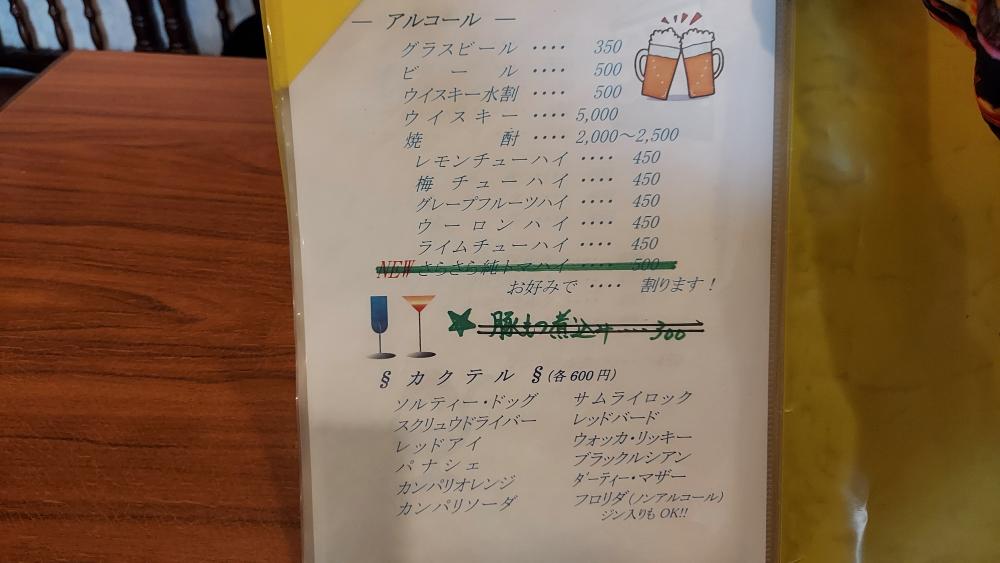 ― アルコール ―
グラスビール ‥‥ 350
ビール ‥‥ 500
ウイスキー水割 ‥‥ 500
ウイスキー ‥‥ 5,000
焼酎 ‥‥ 2,000～2,500
レモンチューハイ ‥‥ 450
梅チューハイ ‥‥ 450
グレープフルーツハイ ‥‥ 450
ウーロンハイ ‥‥ 450
ライムチューハイ ‥‥ 450
NEW さらさら純トマハイ ‥‥ 500
お好みで ‥‥ 割ります！
★ 豚もつ煮込み ‥‥ 300
§ カクテル § (各600円)
ソルティー・ドッグ サムライロック
スクリュウドライバー レッドバード
レッドアイ ウォッカ・リッキー
パナシェ ブラックルシアン
カンパリオレンジ ダーティー・マザー
カンパリソーダ フロリダ(ノンアルコール)
ジン入りも OK!!